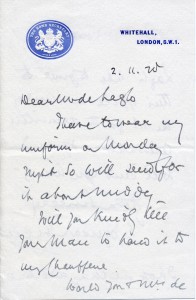 WHITEHALL,
LONDON, S.W.1.
2. 11. 20
Dear
I have to wear my
uniform on Monday
night so will send for
it about midday
Will you kindly tell
your man to hand it to
my chauffeur.
would you & Mrs de